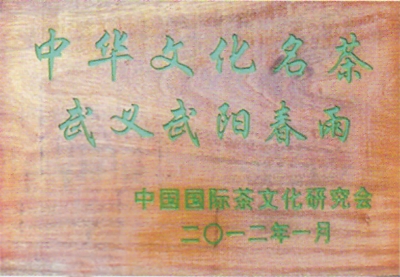 中华文化名茶
武义武阳春雨
中国国际茶文化研究会
二〇一二年一月